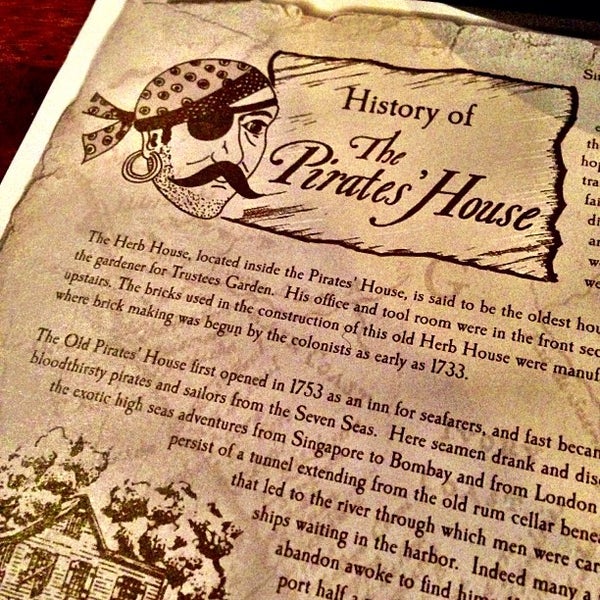 History of
The
Pirates' House
The Herb House, located inside the Pirates' House, is said to be the oldest
the gardener for Trustees Garden. His office and tool room were in the front
upstairs. The bricks used in the construction of this old Herb House were
where brick making was begun by the colonists as early as 1733.
The Old Pirates' House first opened in 1753 as an inn for seafarers, and fast
bloodthirsty pirates and sailors from the Seven Seas. Here seamen drank and
the exotic high seas adventures from Singapore to Bombay and from London
persist of a tunnel extending from the old rum cellar
that led to the river through which men were
ships waiting in the harbor. Indeed many a
abandon awoke to find
port half a